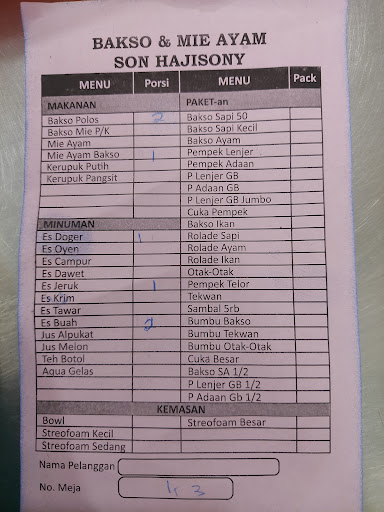 BAKSO & MIE AYAM
SON HAJISONY
MENU Porsi MENU Pack
MAKANAN PAKET-an
Bakso Polos 2 Bakso Sapi 50
Bakso Mie P/K Bakso Sapi Kecil
Mie Ayam Bakso Ayam
Mie Ayam Bakso 1 Pempek Lenjer
Kerupuk Putih Pempek Adaan
Kerupuk Pangsit P Lenjer GB
P Adaan GB
P Lenjer GB Jumbo
Cuka Pempek
MINUMAN Bakso Ikan
Es Doger 1 Rolade Sapi
Es Oyen Rolade Ayam
Es Campur Rolade Ikan
Es Dawet Otak-Otak
Es Jeruk 1 Pempek Telor
Es Krim Tekwan
Es Tawar Sambal 5rb
Es Buah 2 Bumbu Bakso
Jus Alpukat Bumbu Tekwan
Jus Melon Bumbu Otak-Otak
Teh Botol Cuka Besar
Aqua Gelas Bakso SA 1/2
P Lenjer GB 1/2
P Adaan Gb 1/2
KEMASAN
Bowl Streofoam Besar
Streofoam Kecil
Streofoam Sedang
Nama Pelanggan
No. Meja 3